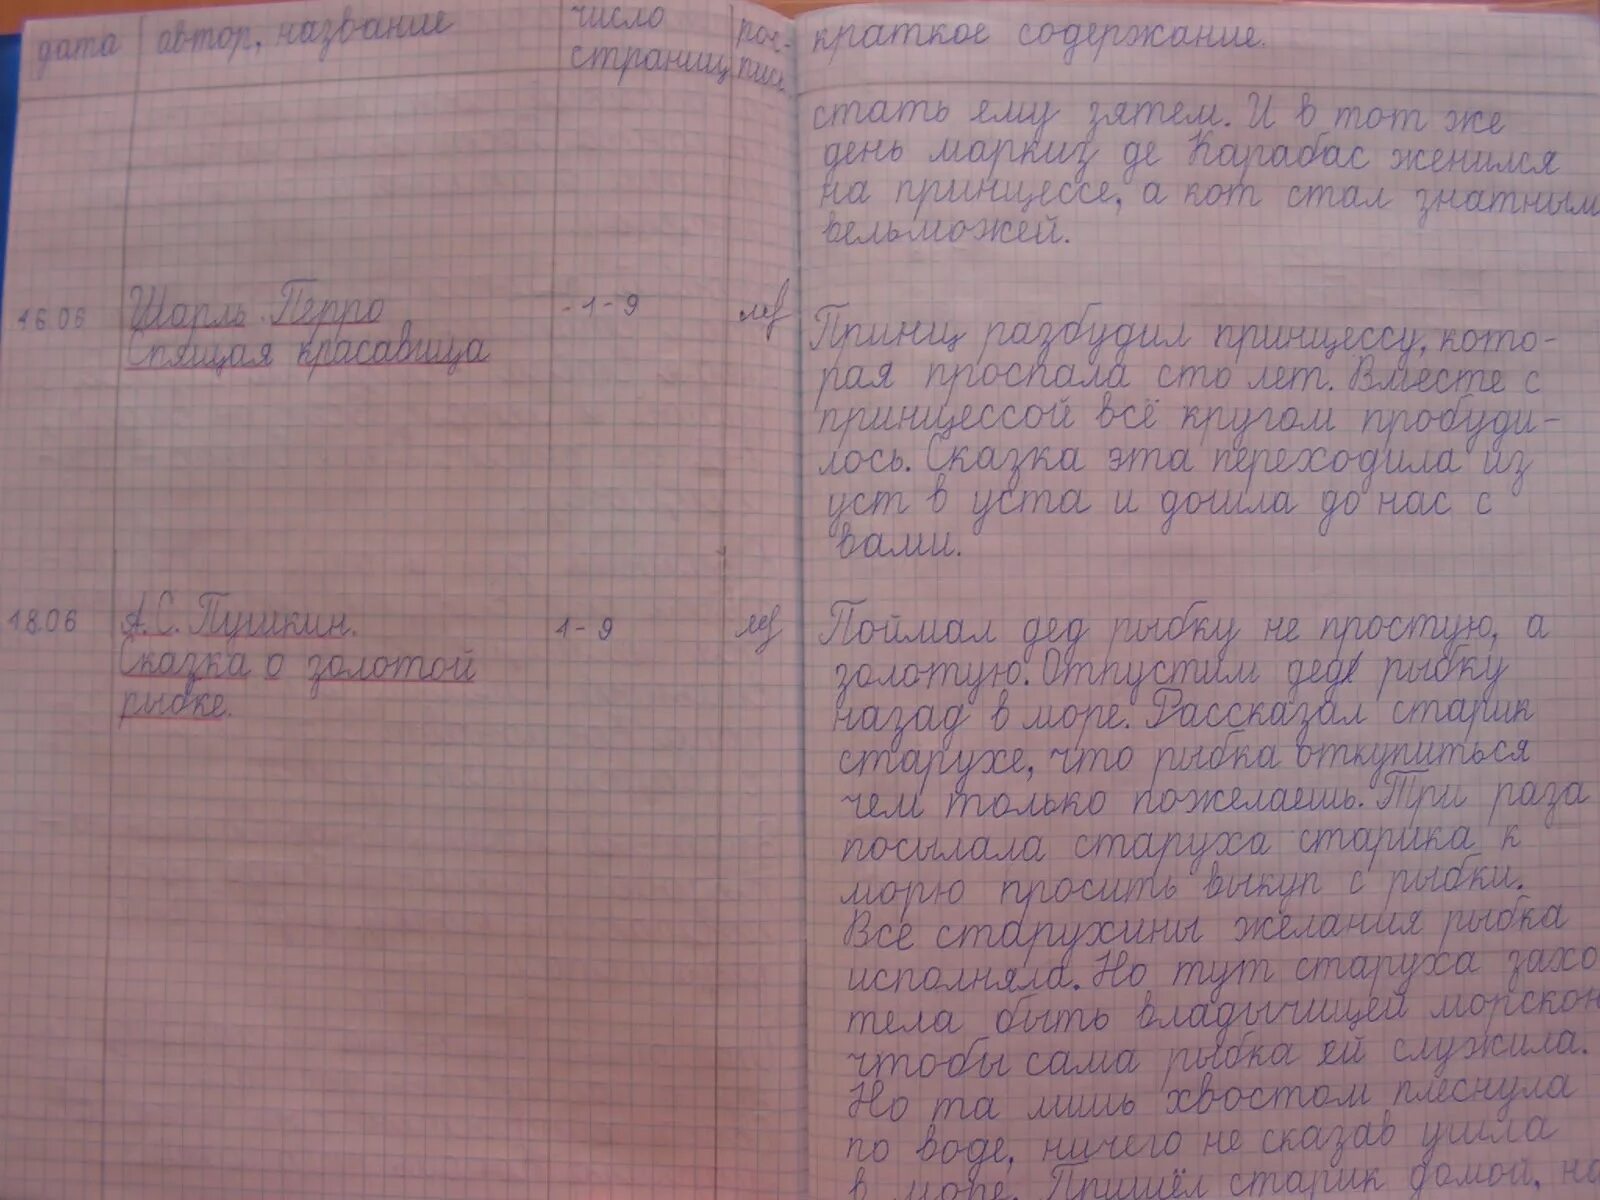 дата
автор, название
число
страниц
рос-
пись
краткое содержание.
стать ему зятем. И в тот же
день маркиз де Карабас женился
на принцессе, а кот стал знатным
вельможей.
16.06
Шарль Перро
Спящая красавица
1-9
Принц разбудил принцессу, кото-
рая проспала сто лет. Вместе с
принцессой всё кругом пробуди-
лось. Сказка эта переходила из
уст в уста и дошла до нас с
вами.
18.06
А.С. Пушкин.
Сказка о золотой
рыбке.
1-9
Поймал дед рыбку не простую, а
золотую. Отпустим дед рыбку
назад в море. Рассказал старик
старухе, что рыбка откупиться
чем только пожелаешь. Три раза
посылала старуха старика к
морю просить выкуп с рыбки.
Все старухины желания рыбка
исполняла. Но тут старуха захо
тела быть владычицей морской
чтобы сама рыбка ей служила.
Но та лишь хвостом плеснула
по воде, ничего не сказав ушла
в море. Пришёл старик домой, но